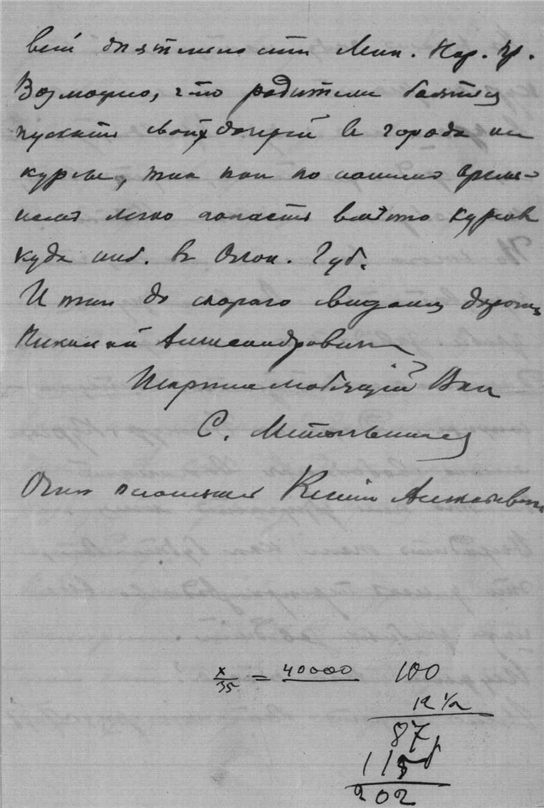 вей деятельности Мин. Нар. Пр.
Возможно, что родители боятся
пускать своих дочерей в города на
курсы, так как по нашим време-
нам легко попасть вместо курсов
куда ниб. в Олон. Губ.
Итак до скорого свиданья дорогой
Александрович
Искренно любящий Вас
С.
Очень Ксении Алексеевне
x/35 = 40000
100
12 1/2
87
115
202